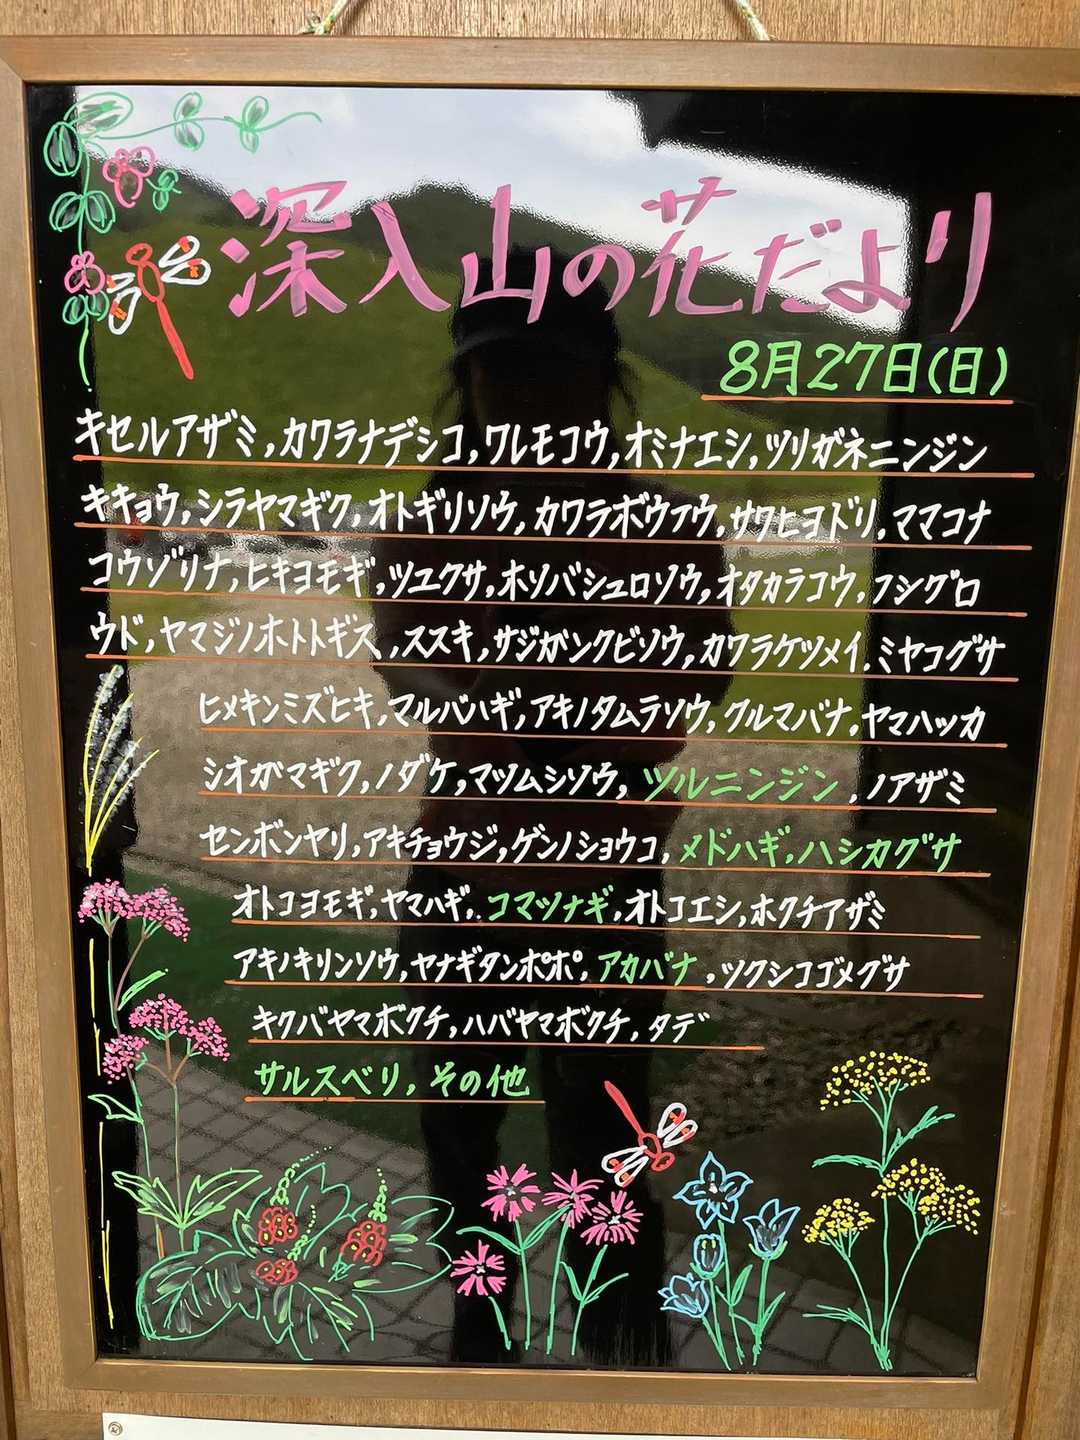 深入山の花だより
8月27日(日)
キセルアザミ,カワラナデシコ,ワレモコウ,オミナエシ,ツリガネニンジン
キキョウ,シラヤマギク,オトギリソウ,カワラボウフウ,サワヒヨドリ,ママコナ
コウゾリナ,ヒキヨモギ,ツユクサ,ホソバシュロソウ,オタカラコウ,フシグロ
ウド,ヤマジノホトトギス,ススキ,サジガンクビソウ,カワラケツメイ.ミヤコグサ
ヒメキンミズヒキ,マルバハギ,アキノタムラソウ,クルマバナ,ヤマハッカ
シオガマギク,ノダケ,マツムシソウ,ツルニンジン,ノアザミ
センボンヤリ,アキチョウジ,ゲンノショウコ,メドハギ,ハシカグサ
オトコヨモギ,ヤマハギ,コマツナギ,オトコエシ,ホクチアザミ
アキノキリンソウ,ヤナギタンポポ,アカバナ,ツクシコゴメグサ
キクバヤマボクチ,ハバヤマボクチ,タデ
サルスベリ,その他